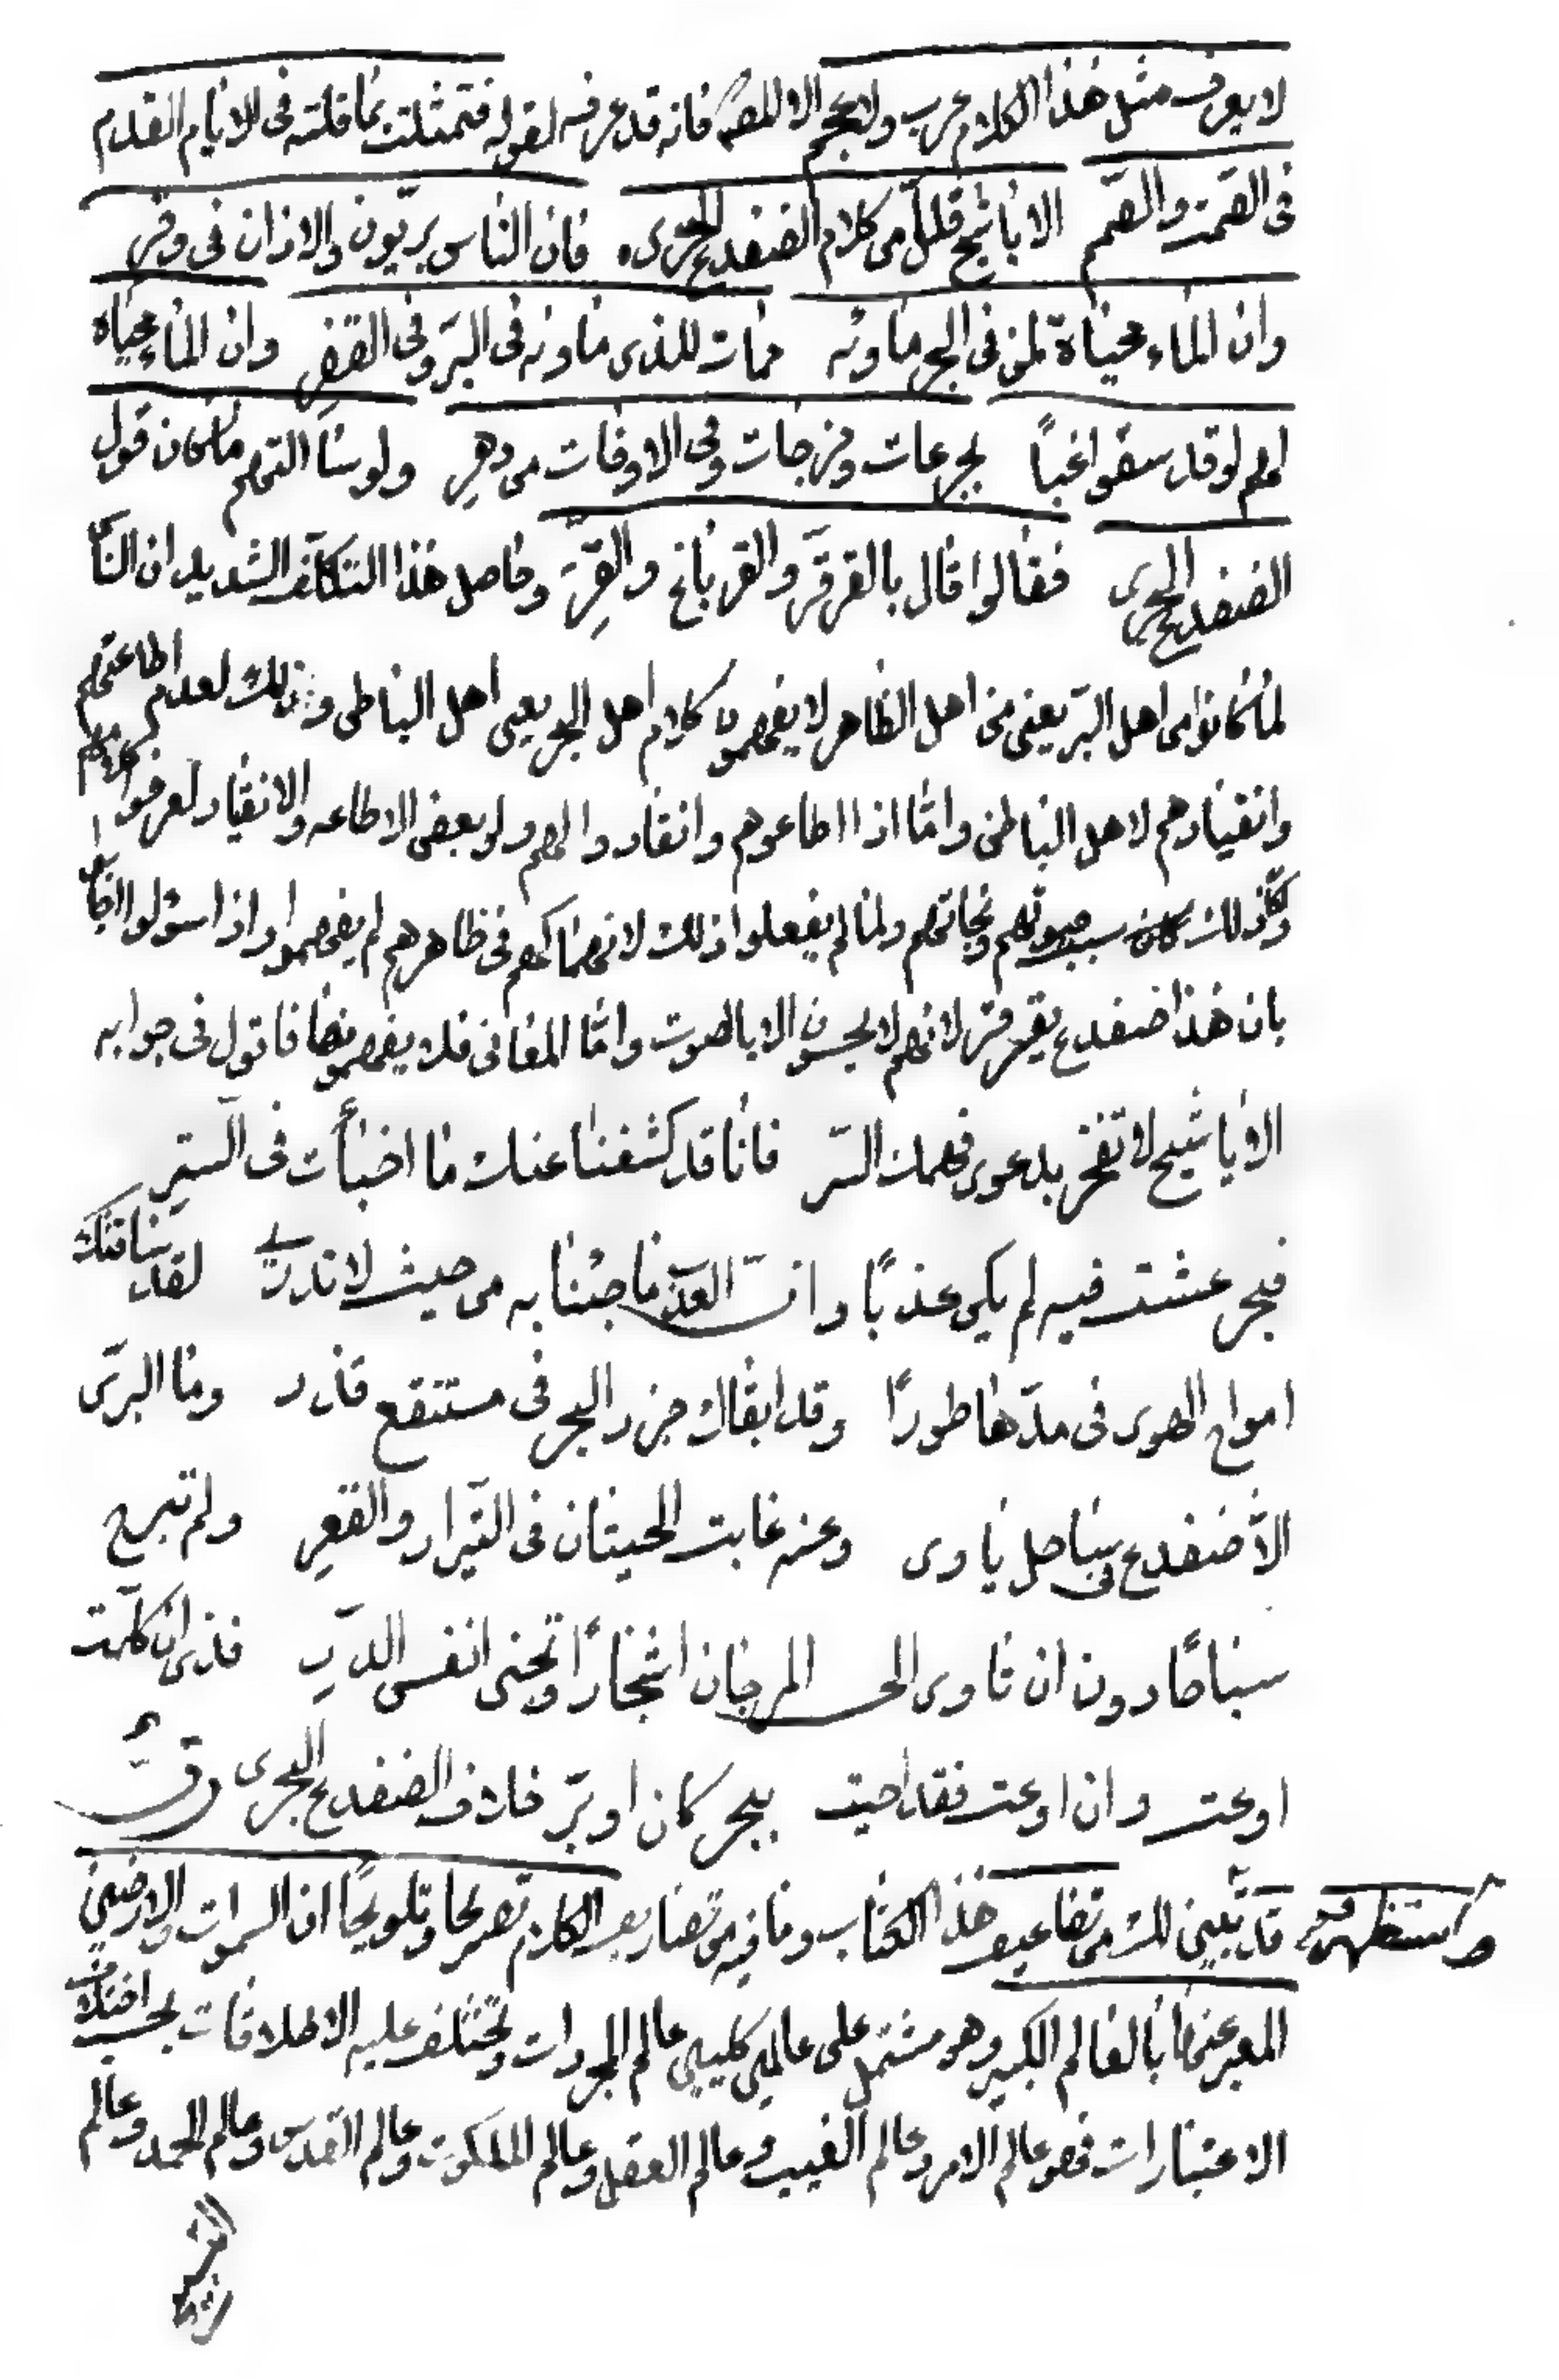 لا يعرف مثل هذا الكلام عرب ولا عجم الا المص فانه قد عرفه لقوله فتمثلت بما قلته فى الايام القدم
فى القمر والقمم الا يا شيخ قل لى من كلام الضفدع البحرى فان الناس بريّون والاذان فى وقر
وان الماء محياة لمن فى البحر ماونه ممات للذى ماونه فى البرّ وفى القفرِ وان الماء محياة
لهم لو قد سقوا غبّاً بجرعات ومزجات وفى الاوقات من دهرِ ولو سئالتهم ما كان قول
الضفدع البحرى فقالوا قال بالقرقرَ والقرباخ والقِرّ وحاصل هذا التكلّف الشديد ان الناس
لما كانوا من اهل البرّ يعنى من اهل الظاهر لا يفهمون كلام اهل البحر يعنى اهل الباطن وذلك لعدم اطاعتهم
وانقيادهم لاهل الباطن وامّا اذا اطاعوهم وانقادوا لهم ولو بعض الاطاعه والانقياد لعرفوا كلامهم
ولكان ذلك سبب حيوتهم ونجاتهم ولما لم يفعلوا ذلك لانهماكهم فى ظاهرهم لم يفهموا واذا سئلوا اجابوا
بان هذا ضفدع يقرقر لانهم لا يحسون الا بالصوت وامّا المعانى فلا يفهمونها فاقول فى جوابه
الا يا شيخ لا تفخر بدعوى فهمك السّر فانا قد كشفنا عنك ما اخبأت فى الستر
فبحر عشت فيه لم يكن عذبًا وانّ العذب ما جئنا به من حيث لا تدرى لقد ساقتك
امواج الهوى فى مدّها طورًا وقد ابقاك جزر البحر فى مستنقع قذر وما البرّى
الا ضفدع فى ساحل ياوى وعنه غابت الحيتان فى التيار والقعرِ ولم تبرح
سباحًا دون ان تاوى الى المرجان اشجارًا وتجنى انفس الدرِّ فذى ان كلّمت
اوعت وان اوعت فقد احيت ببحر كان او برّ خلاف الضفدع البحرى
واستظهر قد تبيّن لك من تضاعيف هذا الكتاب وما فيه من تصاريف الكلام تصريحا وتلويحًا ان السموات والارضين
المعبر عنها بالعالم الكبير وهو مشتمل على عالمين كليين عالم المجردات وتختلف عليه الاطلاقات بحسب اختلاف
الاعتبارات فهو عالم الامر وعالم الغيب وعالم العقل وعالم الملكوت وعالم القدس وعالم الحمد وعالم